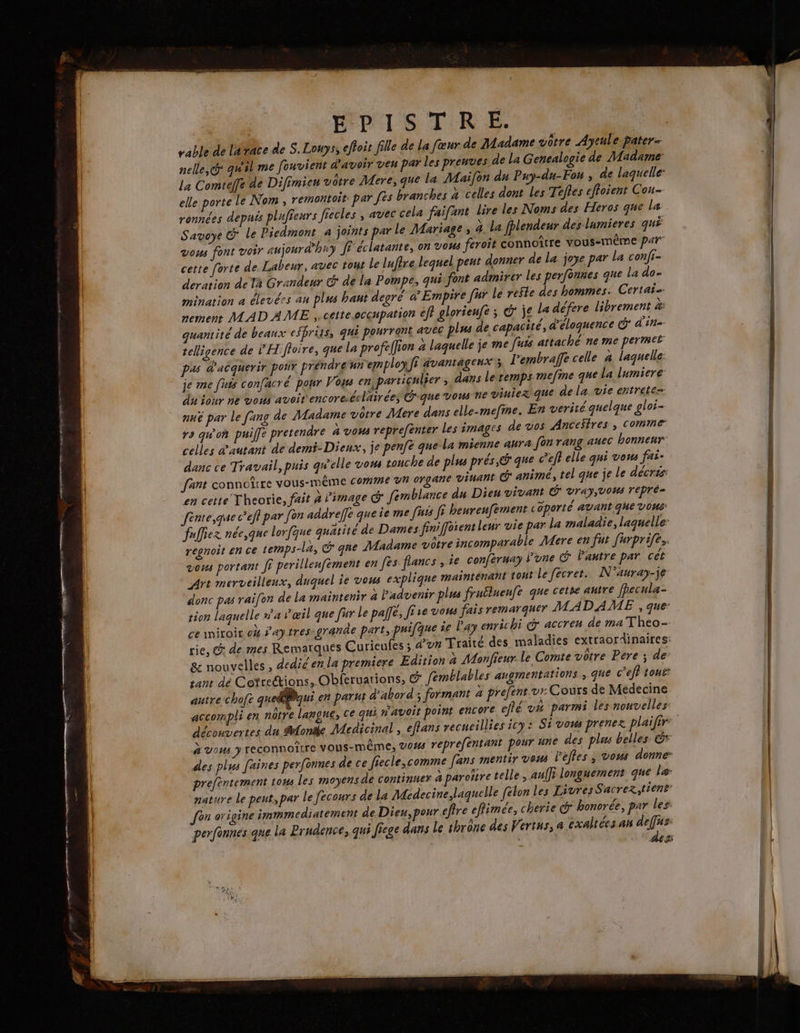 EPISTRE.
rable de la race de S. Louys, eſtoit fille de la ſœur de Madame vôtre Ayeule pater-
nelle,& qu'il me ſouvient d'avoir veu par les preuves de la Genealogie de Madame
la Comteſſe de Diſimieu vôtre Mere, que la Maiſon du Puy-du-Fou , de laquelle
elle porte le Nom , remontoit par ſes branches à celles dont les Teſtes eſtoient Cou-
ronnées depuis pluſieurs ſiecles , avec cela faiſant lire les Noms des Heros que la
Savoye & le Piedmont a joints par le Mariage , à la ſplendeur des lumieres qui
vous font voir aujourd'huy ſi éclatante, on vous feroit connoître vous-même par
cette ſorte de Labeur, avec tout le luſtre lequel peut donner de la joye par la conſi-
deration de la Grandeur & de la Pompe, qui font admirer les perſonnes que la do-
mination a élevées au plus haut degré d'Empire ſur le reſte des hommes. Certai-
nement MADAME , cette occupation eſt glorieuſe ; & je la défere librement à
quantité de beaux eſprits, qui pourront avec plus de capacité, d'éloquence & d'in-
telligence de l'Hiſtoire, que la profeſſion à laquelle je me ſuis attaché ne me permet
pas d'acquerir pour prendre un employ ſi avantageux ; l'embraſſe celle à laquelle
je me ſuis conſacré pour Vous en particulier , dans le temps meſme que la lumiere
du iour ne vous avoit encore éclairée, & que vous ne viuiez que de la vie entrete-
nuë par le ſang de Madame vôtre Mere dans elle-meſme. En verité quelque gloi-
re qu'on puiſſe pretendre à vous repreſenter les images de vos Anceſtres , comme
celles d'autant de demi-Dieux, je penſe que la mienne aura ſon rang auec honneur
dans ce Travail, puis qu'elle vous touche de plus prés,& que c'eſt elle qui vous fai-
ſant connoître vous-même comme vn organe viuant & animé, tel que je le décris
en cette Theorie, fait à l'image & ſemblance du Dieu vivant & vray,vous repre-
ſente,que c'eſt par ſon addreſſe que ie me ſuis ſi heureuſement côporté avant que vous
fuſſiez née,que lorſque quātité de Dames finiſſoient leur vie par la maladie,laquelle
regnoit en ce temps-là, & que Madame vôtre incomparable Mere en fut ſurpriſe,
vous portant ſi perilleuſement en ſes flancs , ie conſeruay l'vne & l'autre par cét
Art merveilleux, duquel ie vous explique maintenant tout le ſecret. N'auray-je
donc pas raiſon de la maintenir à l'advenir plus fructueuſe que cette autre ſpecula-
tion laquelle n'a l'œil que ſur le paſſé, ſi ie vous fais remarquer MADAME , que
ce miroir où j'ay tres-grande part, puiſque ie l'ay enrichi & accreu de ma Theo-
rie, & de mes Remarques Curieuſes ; d'vn Traité des maladies extraordinaires
& nouvelles , dedié en la premiere Edition à Monſieur le Comte vôtre Pere ; de
tant de Corrections, Obſeruations, & ſemblables augmentations , que c'eſt tout
autre choſe que qui en parut d'abord ; formant à preſent vn Cours de Medecine
accompli en nôtre langue, ce qui n'avoit point encore eſté vû parmi les nouvelles
découvertes du Monde Medicinal , eſtans recueillies icy : Si vous prenez plaiſir
à vous y reconnoître vous-même, vous repreſentant pour une des plus belles &
des plus ſaines perſonnes de ce ſiecle,comme ſans mentir vous l'eſtes , vous donne
preſentement tous les moyens de continuer à paroître telle , auſſi longuement que la
nature le peut, par le ſecours de la Medecine,laquelle ſelon les Livres Sacrez,tient
ſon origine immmediatement de Dieu,pour eſtre eſtimée, cherie & honorée, par les
perſonnes que la Prudence, qui ſiege dans le thrône des Vertus, a exaltées au deſſus
des